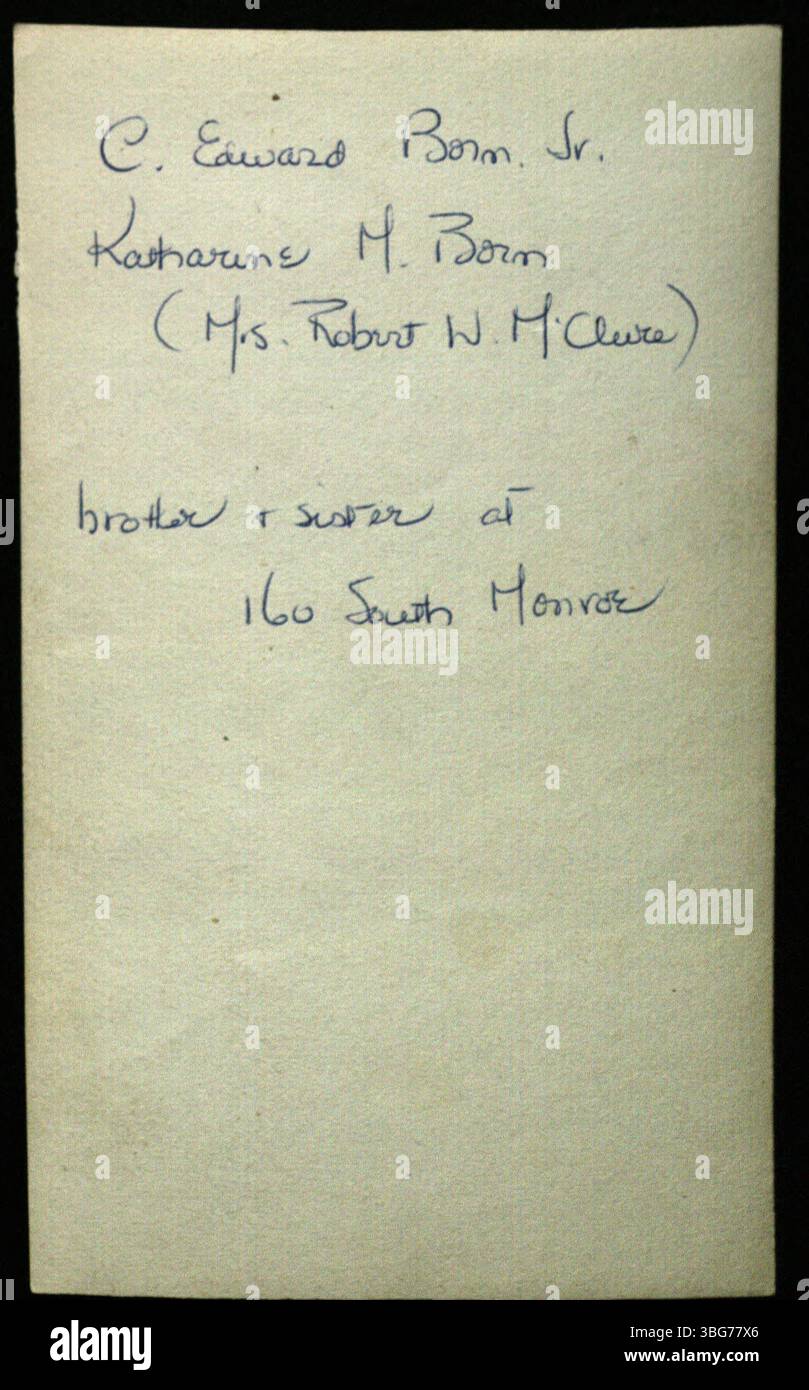 C. Edward Born. Jr.
Katharine M. Born
(Mrs. Robert W. McClure)
brother + sister at
160 South Monroe
alamy
alamy
alamy
alamy
Image ID: 3BG77X6
www.alamy.com